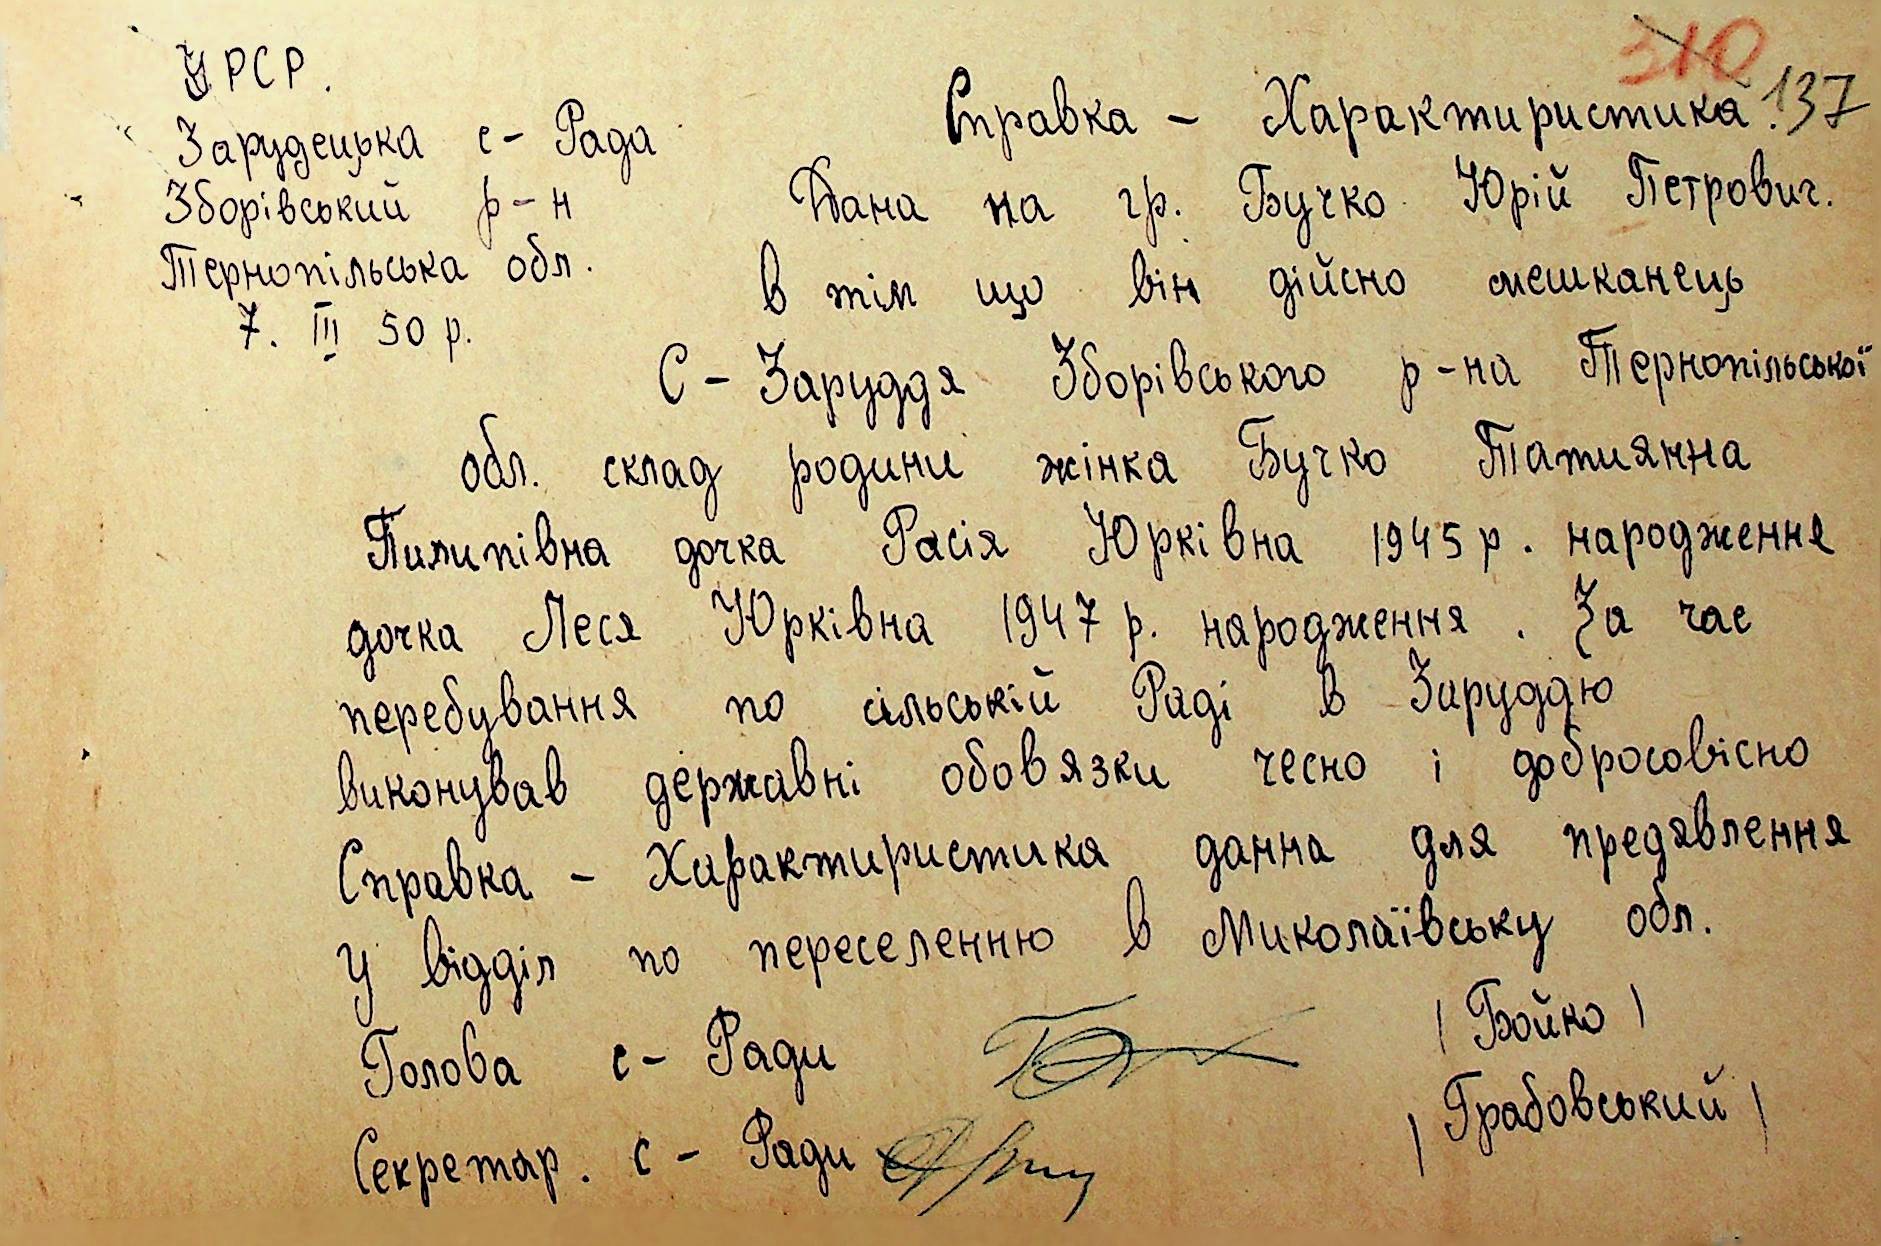 УРСР.
Зарудецька с - Рада
Зборівський р - н
Тернопільська обл.
7. III 50 р.
310
137
Справка - Характиристика.
Дана на гр. Бучко Юрій Петрович.
в тім що він дійсно мешканець
С - Заруддя Зборівського р - на Тернопільської
обл. склад родини жінка Бучко Татиянна
Пилипівна дочка Расія Юрківна 1945 р. народження
дочка Леся Юрківна 1947 р. народження. За час
перебування по сільській Раді в Заруддю
виконував державні обов'язки чесно і добросовісно
Справка - Характиристика данна для предявлення
у відділ по переселенню в Миколаївську обл.
Голова с - Ради / Бойко /
Секретар. с - Ради / Грабовський /